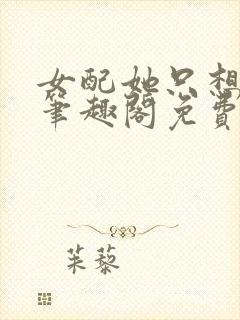 女配她只想
笔趣阁免费
茱藜